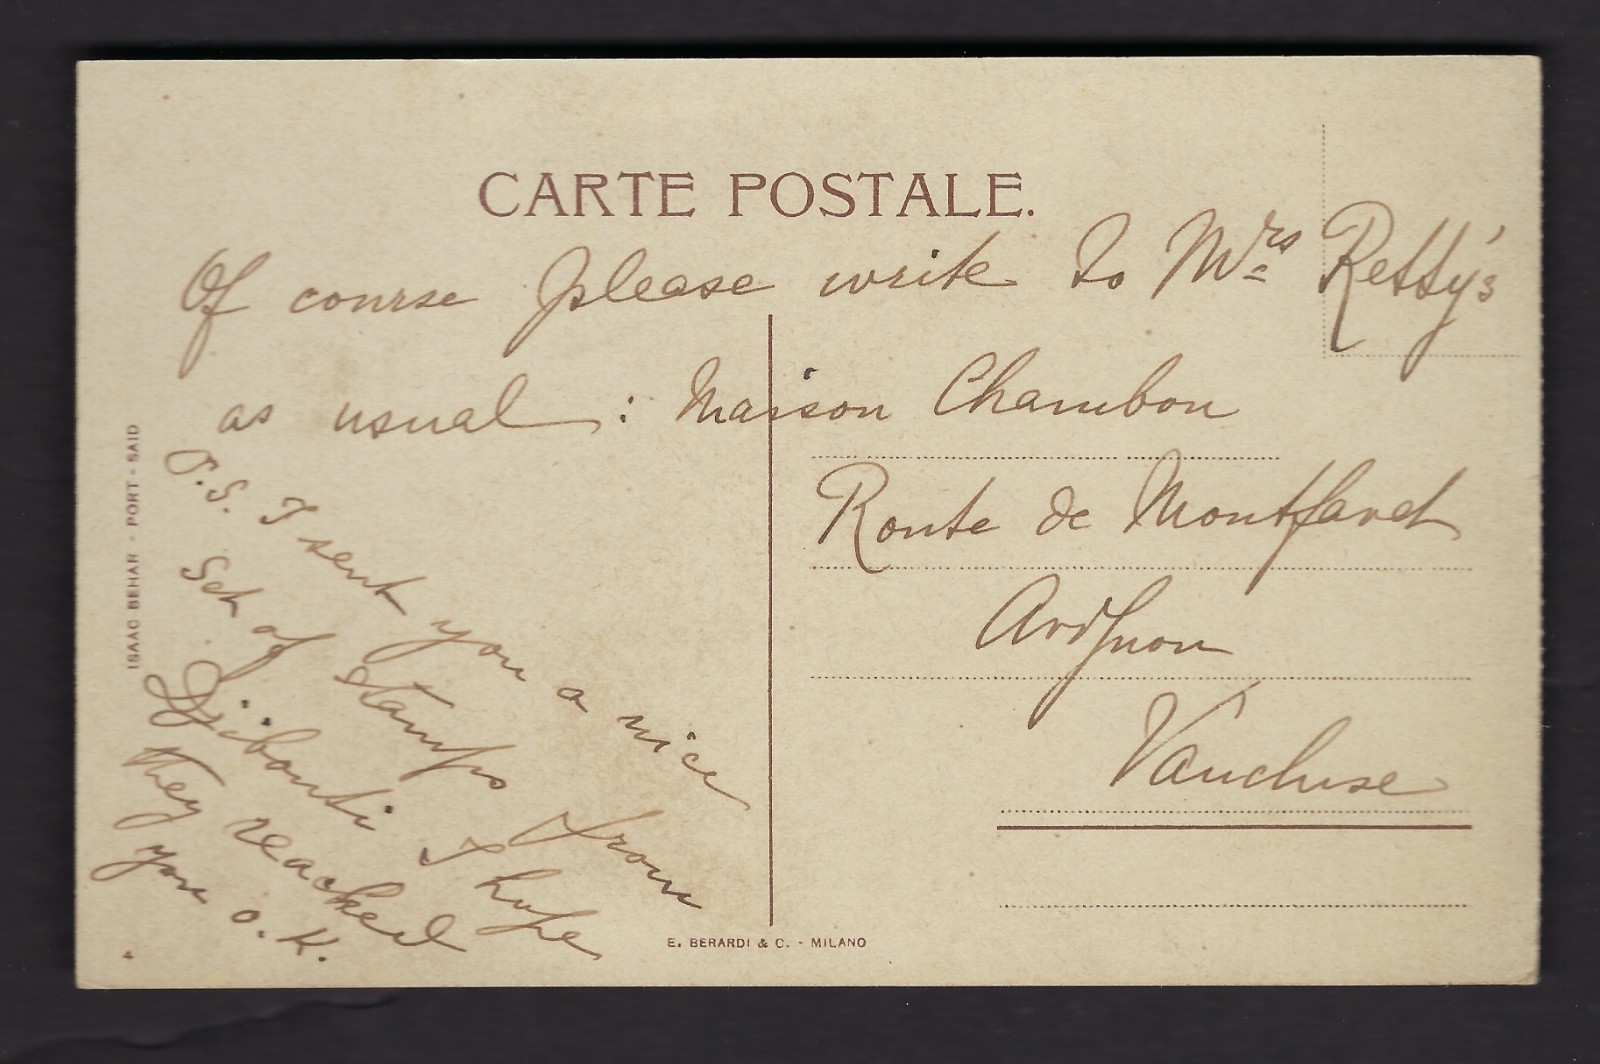 CARTE POSTALE.
Of course please write to Mrs Retty's
as usual : Maison Chambon
Route de Montfavet
Avignon
Vaucluse
P.S. I sent you a nice
Set of stamps from
Djibouti I hope
they reached
you O.K.
ISAAC BEHAR - PORT - SAID
E. BERARDI & C. - MILANO
4